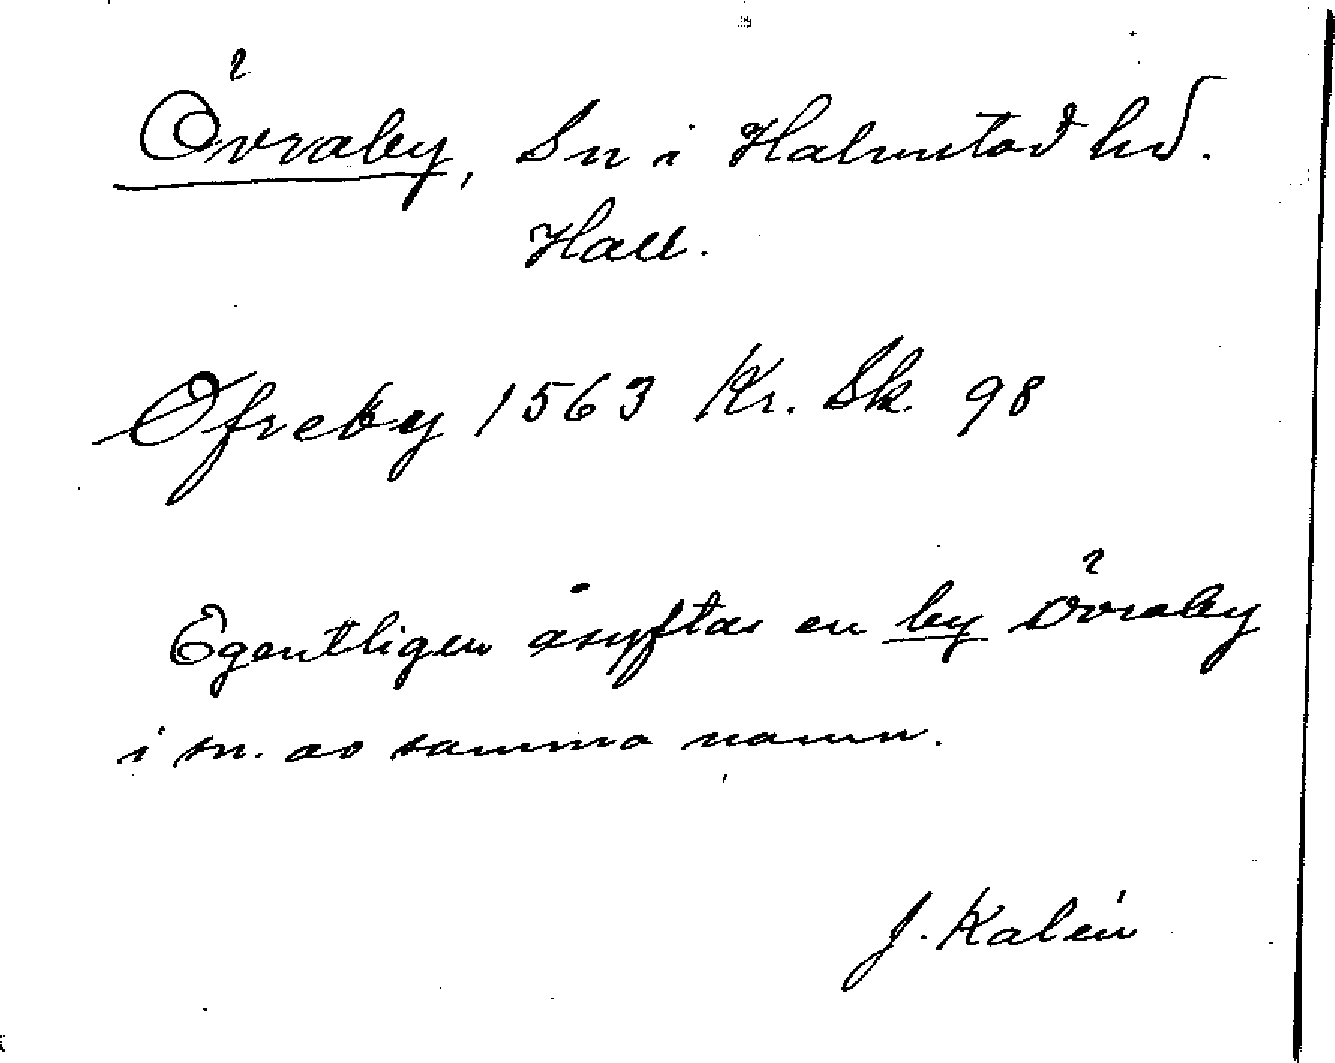 Övraby, Sn i Halmstad hd.
Hall.
Øfreby 1563 Kr. Sk. 98
Egentligen åsyftas en by Övraby
i sn. av samma namn.
J. Kalén